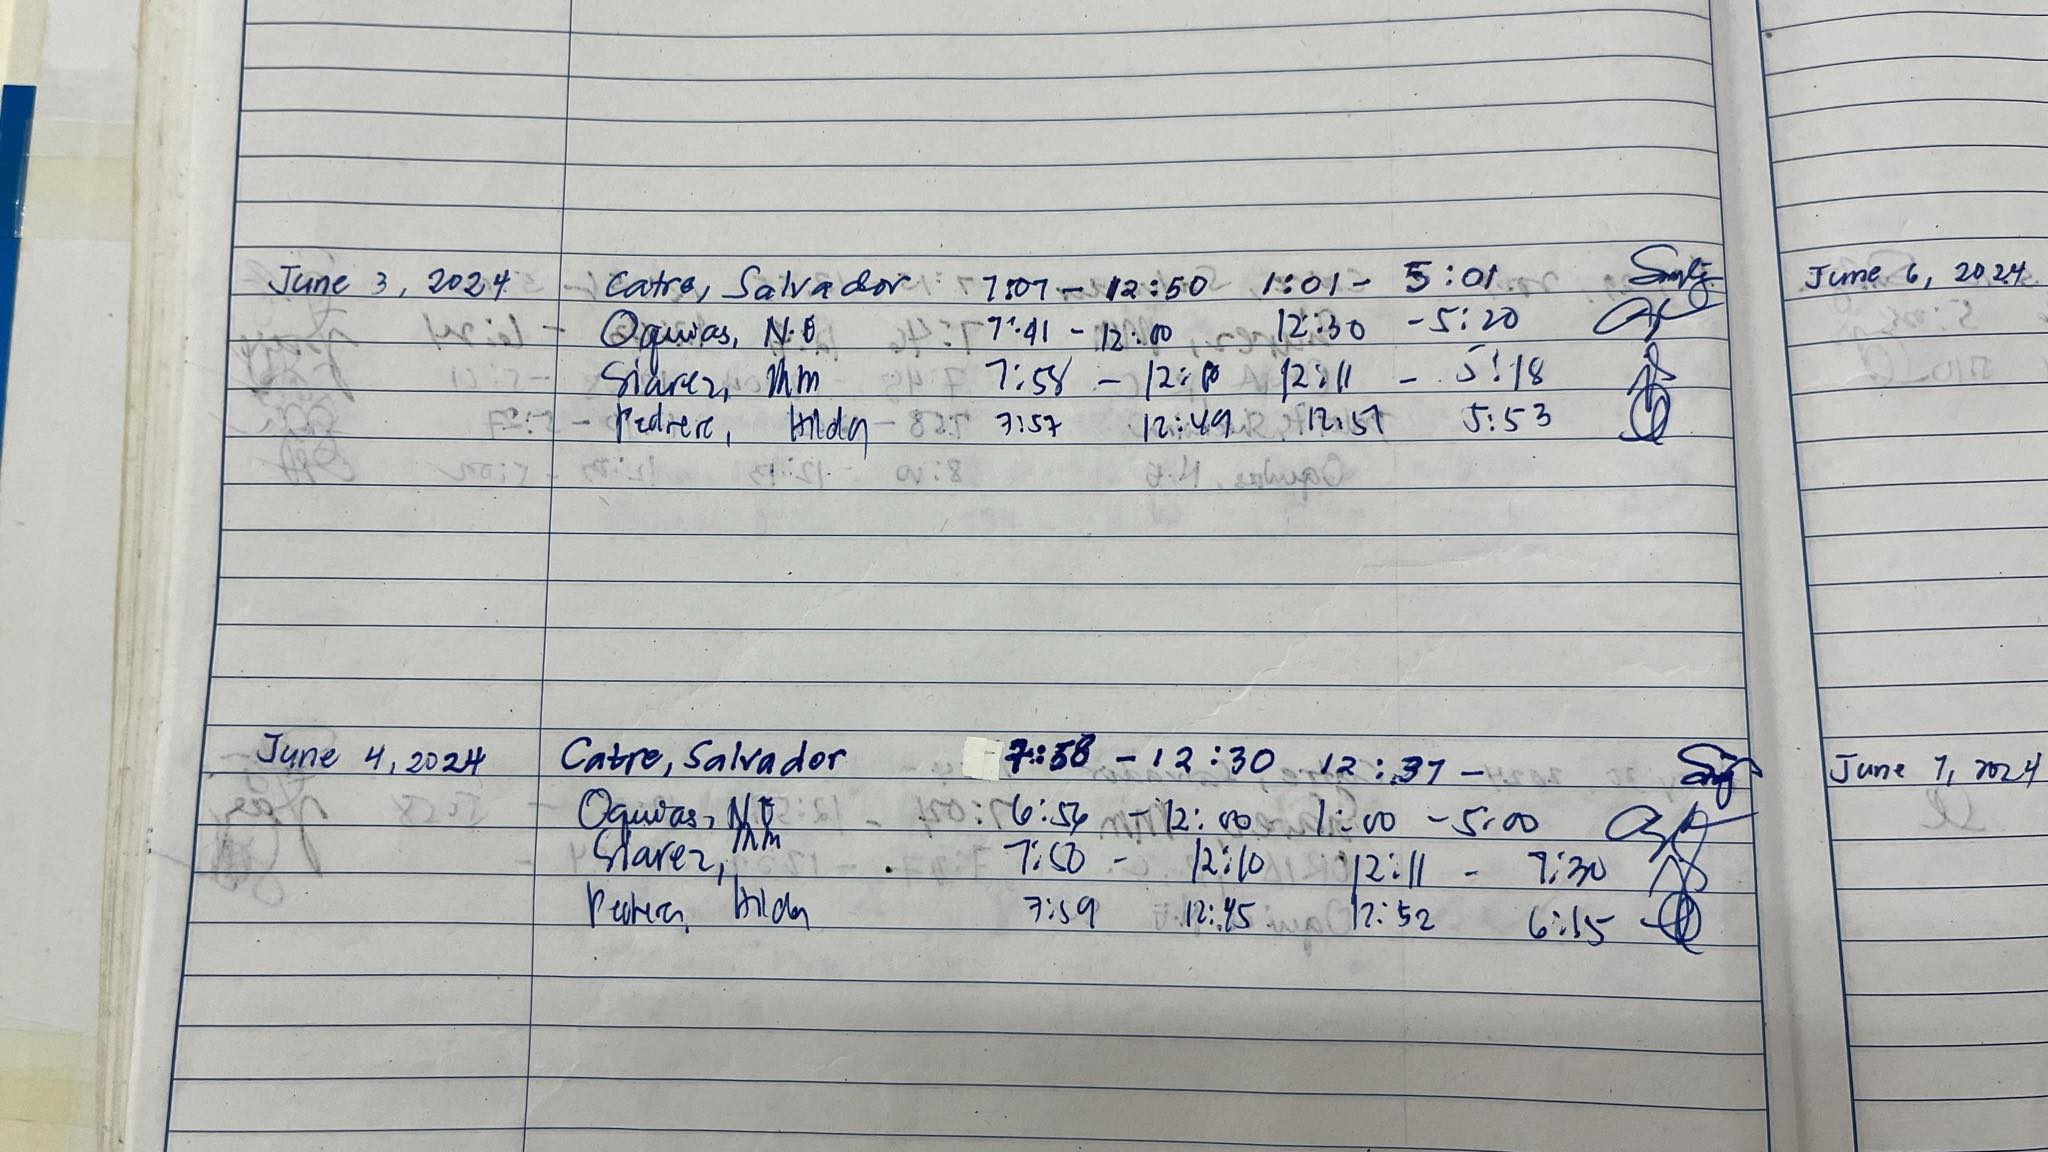 June 3, 2024 - Catre, Salvador 7:07 - 12:50 1:01 - 5:01
Oquias, N.O 7:41 - 12:00 12:30 - 5:20
Siarez, MM 7:58 - 12:10 12:11 - 5:18
Pedrera, Hilda 7:57 12:49 12:57 5:53
June 4, 2024 Catre, Salvador 7:58 - 12:30 12:37 -
Oquias, N.O 6:54 - 12:00 1:00 - 5:00
Siarez, MM 7:50 - 12:10 12:11 - 7:30
Pedrera, Hilda 7:59 12:45 12:52 6:15
June 6, 2024
June 7, 2024